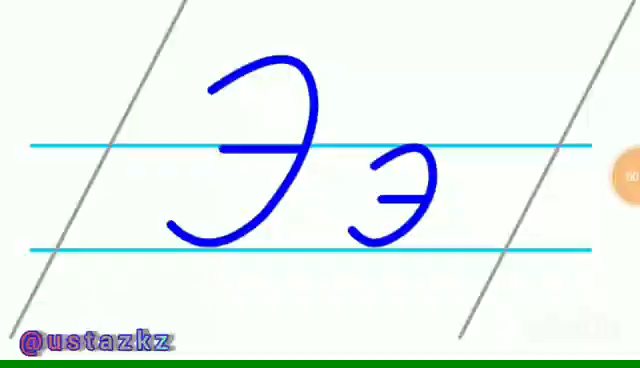 Э э
@ustazkz
60